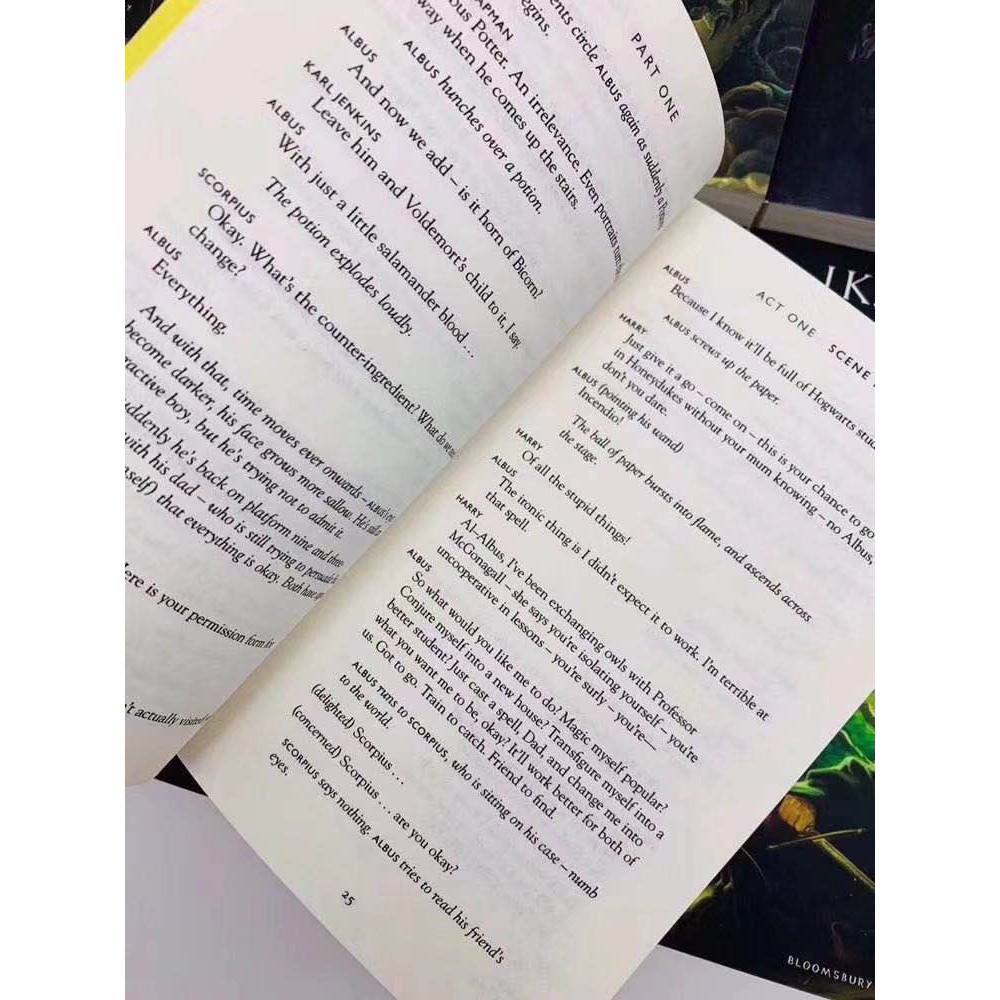 PART ONE
ents circle ALBUS again as suddenly a
egins.
APMAN
ous Potter. An irrelevance. Even portraits turn
way when he comes up the stairs.
ALBUS hunches over a potion.
ALBUS
And now we add – is it horn of Bicorn?
KARL JENKINS
Leave him and Voldemort's child to it, I say.
ALBUS
With just a little salamander blood ...
The potion explodes loudly.
SCORPIUS
Okay. What's the counter-ingredient? What do we
change?
ALBUS
Everything.
And with that, time moves ever onwards – ALBUS's
become darker, his face grows more sallow. He's still
ractive boy, but he's trying not to admit it.
uddenly he's back on platform nine and three-
with his dad – who is still trying to persuade
self) that everything is okay. Both have
ere is your permission form
't actually visited
ACT ONE SCENE
ALBUS
Because I know it'll be full of Hogwarts stud
ALBUS screws up the paper.
HARRY
Just give it a go – come on – this is your chance to go
in Honeydukes without your mum knowing – no Albus,
don't you dare.
ALBUS (pointing his wand)
Incendio!
The ball of paper bursts into flame, and ascends across
the stage.
HARRY
Of all the stupid things!
ALBUS
The ironic thing is I didn't expect it to work. I'm terrible at
that spell.
HARRY
Al–Albus, I've been exchanging owls with Professor
McGonagall – she says you're isolating yourself – you're
uncooperative in lessons – you're surly – you're—
ALBUS
So what would you like me to do? Magic myself popular?
Conjure myself into a new house? Transfigure myself into a
better student? Just cast a spell, Dad, and change me into
what you want me to be, okay? It'll work better for both of
us. Got to go. Train to catch. Friend to find.
ALBUS runs to SCORPIUS, who is sitting on his case – numb
to the world.
(delighted) Scorpius ...
(concerned) Scorpius ... are you okay?
SCORPIUS says nothing. ALBUS tries to read his friend's
eyes.
25
J.K.
BLOOMSBURY